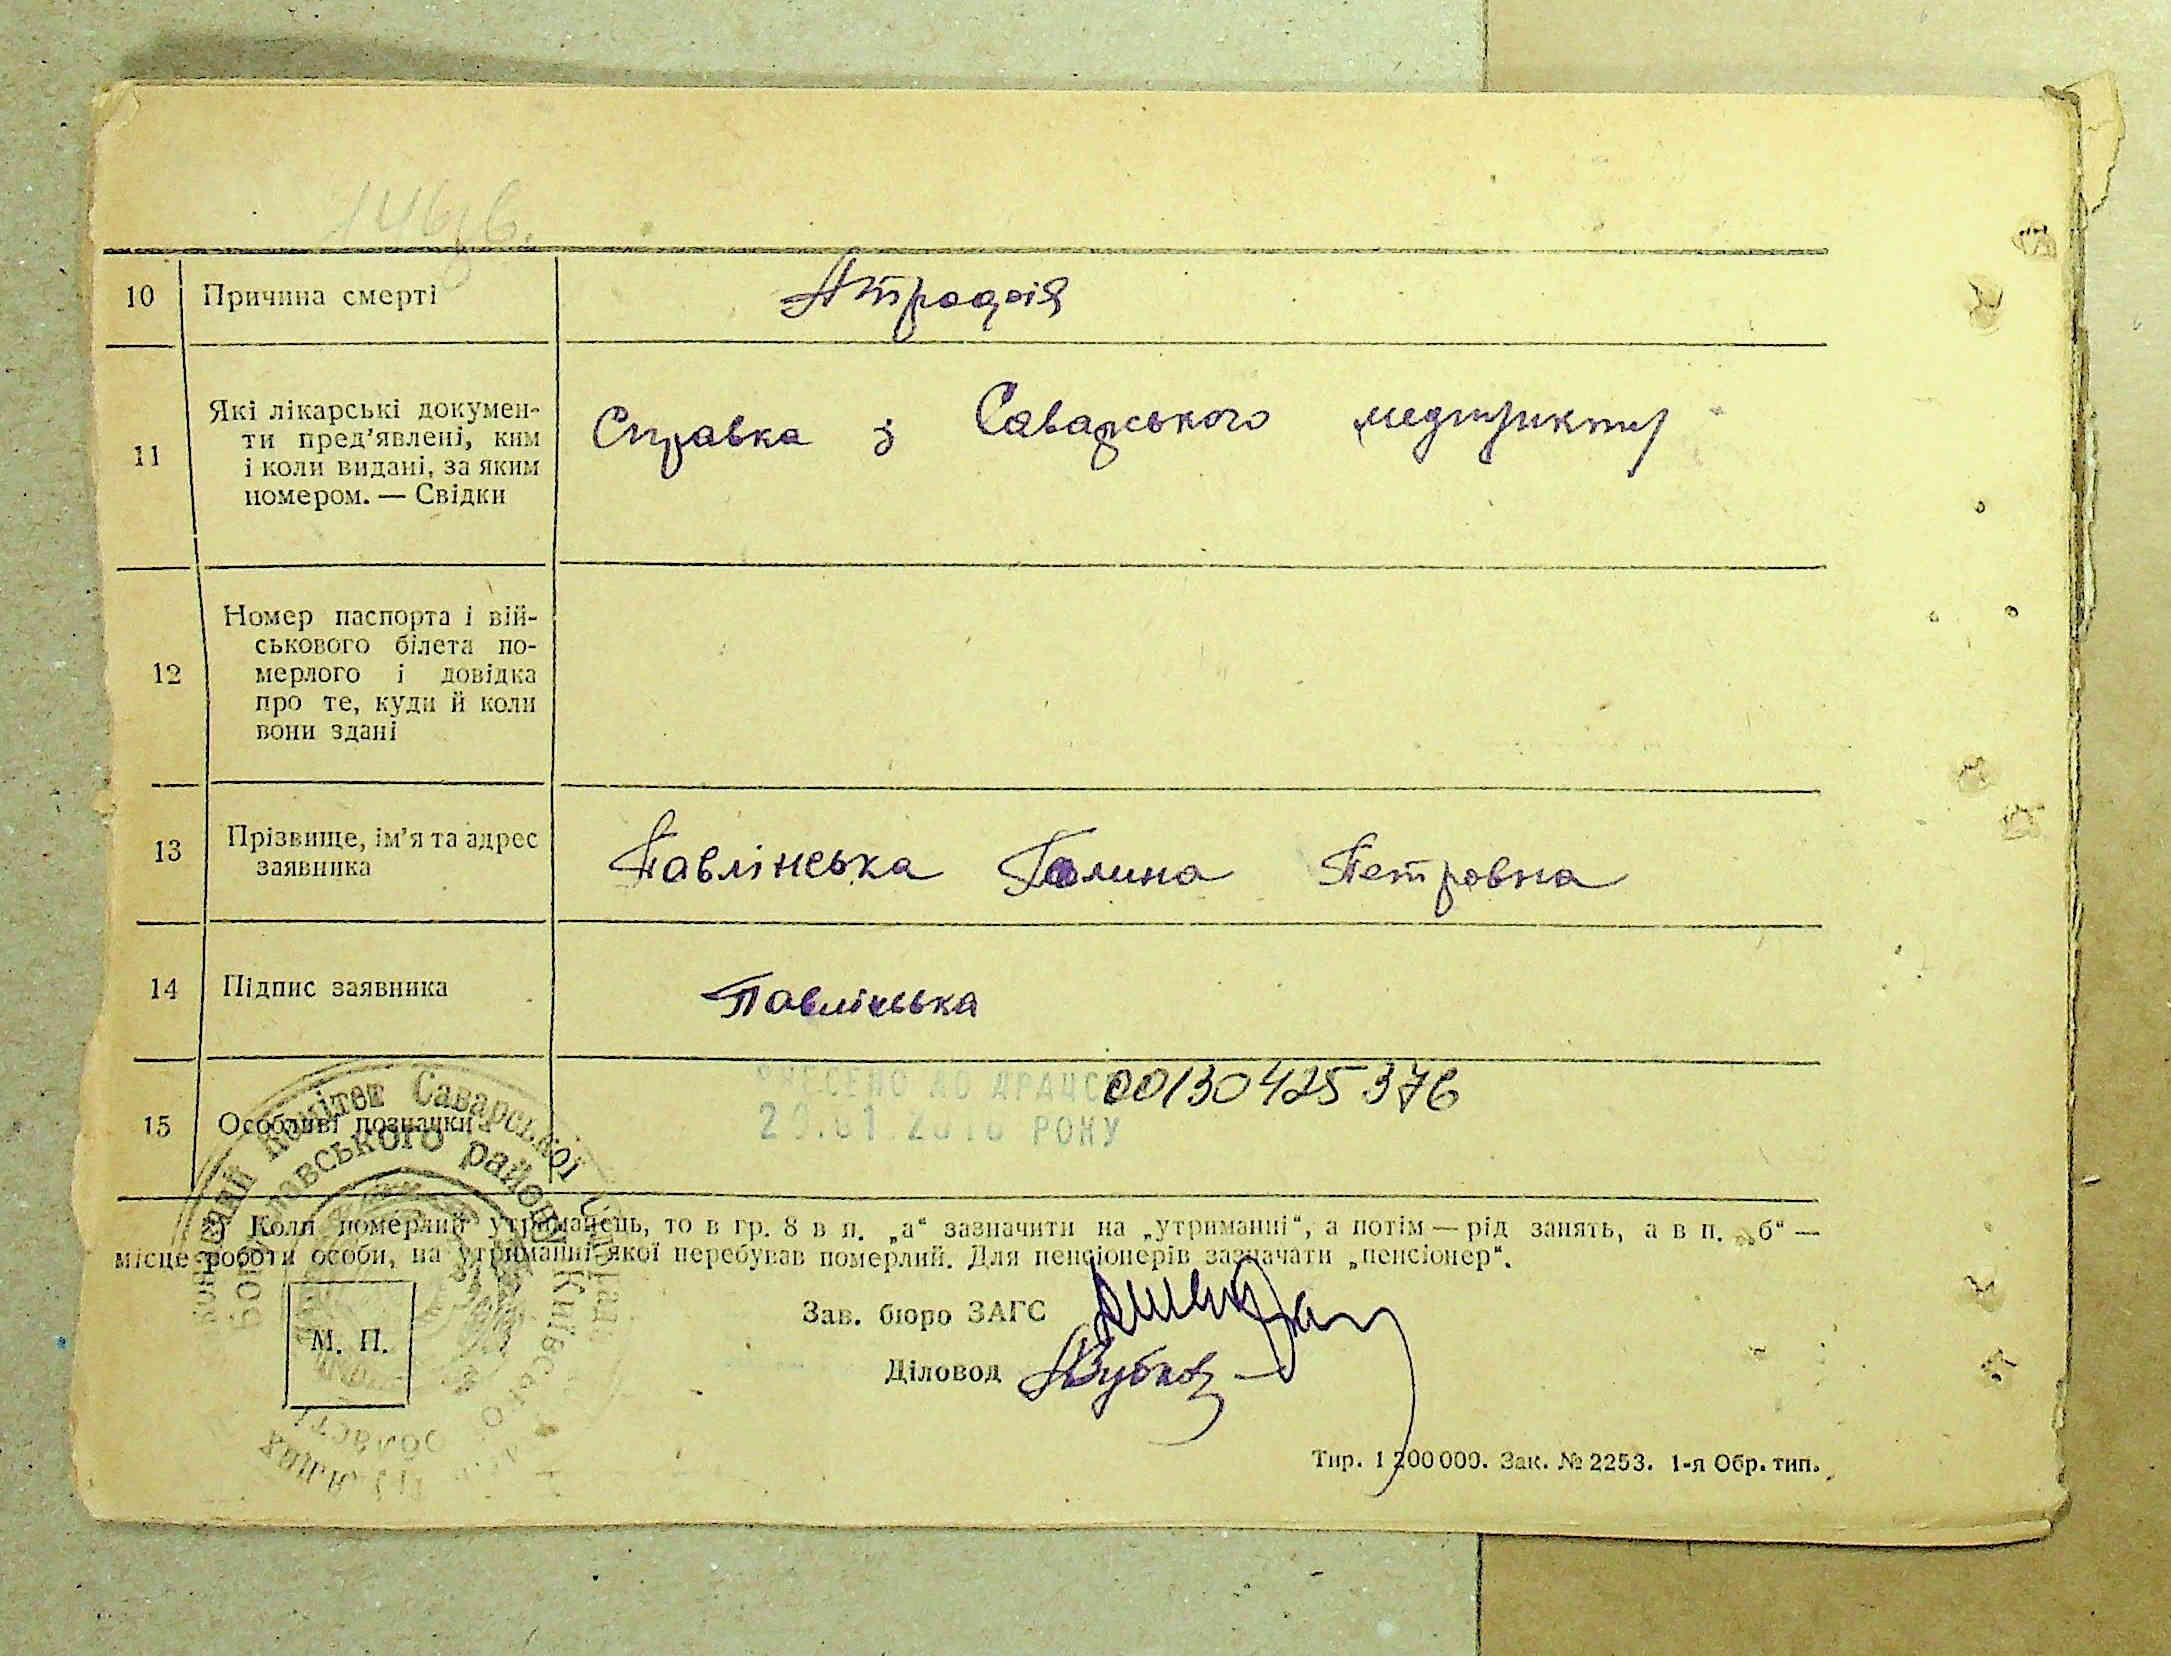 10 Причина смерті Атрофія
11 Які лікарські докумен-
ти пред’явлені, ким
і коли видані, за яким
номером. — Свідки
Справка з Саварського медпункту
12 Номер паспорта і вій-
ськового білета по-
мерлого і довідка
про те, куди й коли
вони здані
13 Прізвище, ім’я та адрес
заявника
Павлінська Галина Петровна
14 Підпис заявника Павлінська
00130425376
ВНЕСЕНО ДО ДРАЦС
РОКУ
15 Особливі позначки
Комітет Саварської
району Київської
області
*) Коли померлий утриманець, то в гр. 8 в п. „а“ зазначити на „утриманні“, а потім — рід занять, а в п. „б“ —
місце роботи особи, на утриманні якої перебував померлий. Для пенсіонерів зазначати „пенсіонер“.
М. П.
Зав. бюро ЗАГС
Діловод
Тир. 1 200 000. Зак. № 2253. 1-я Обр. тип.